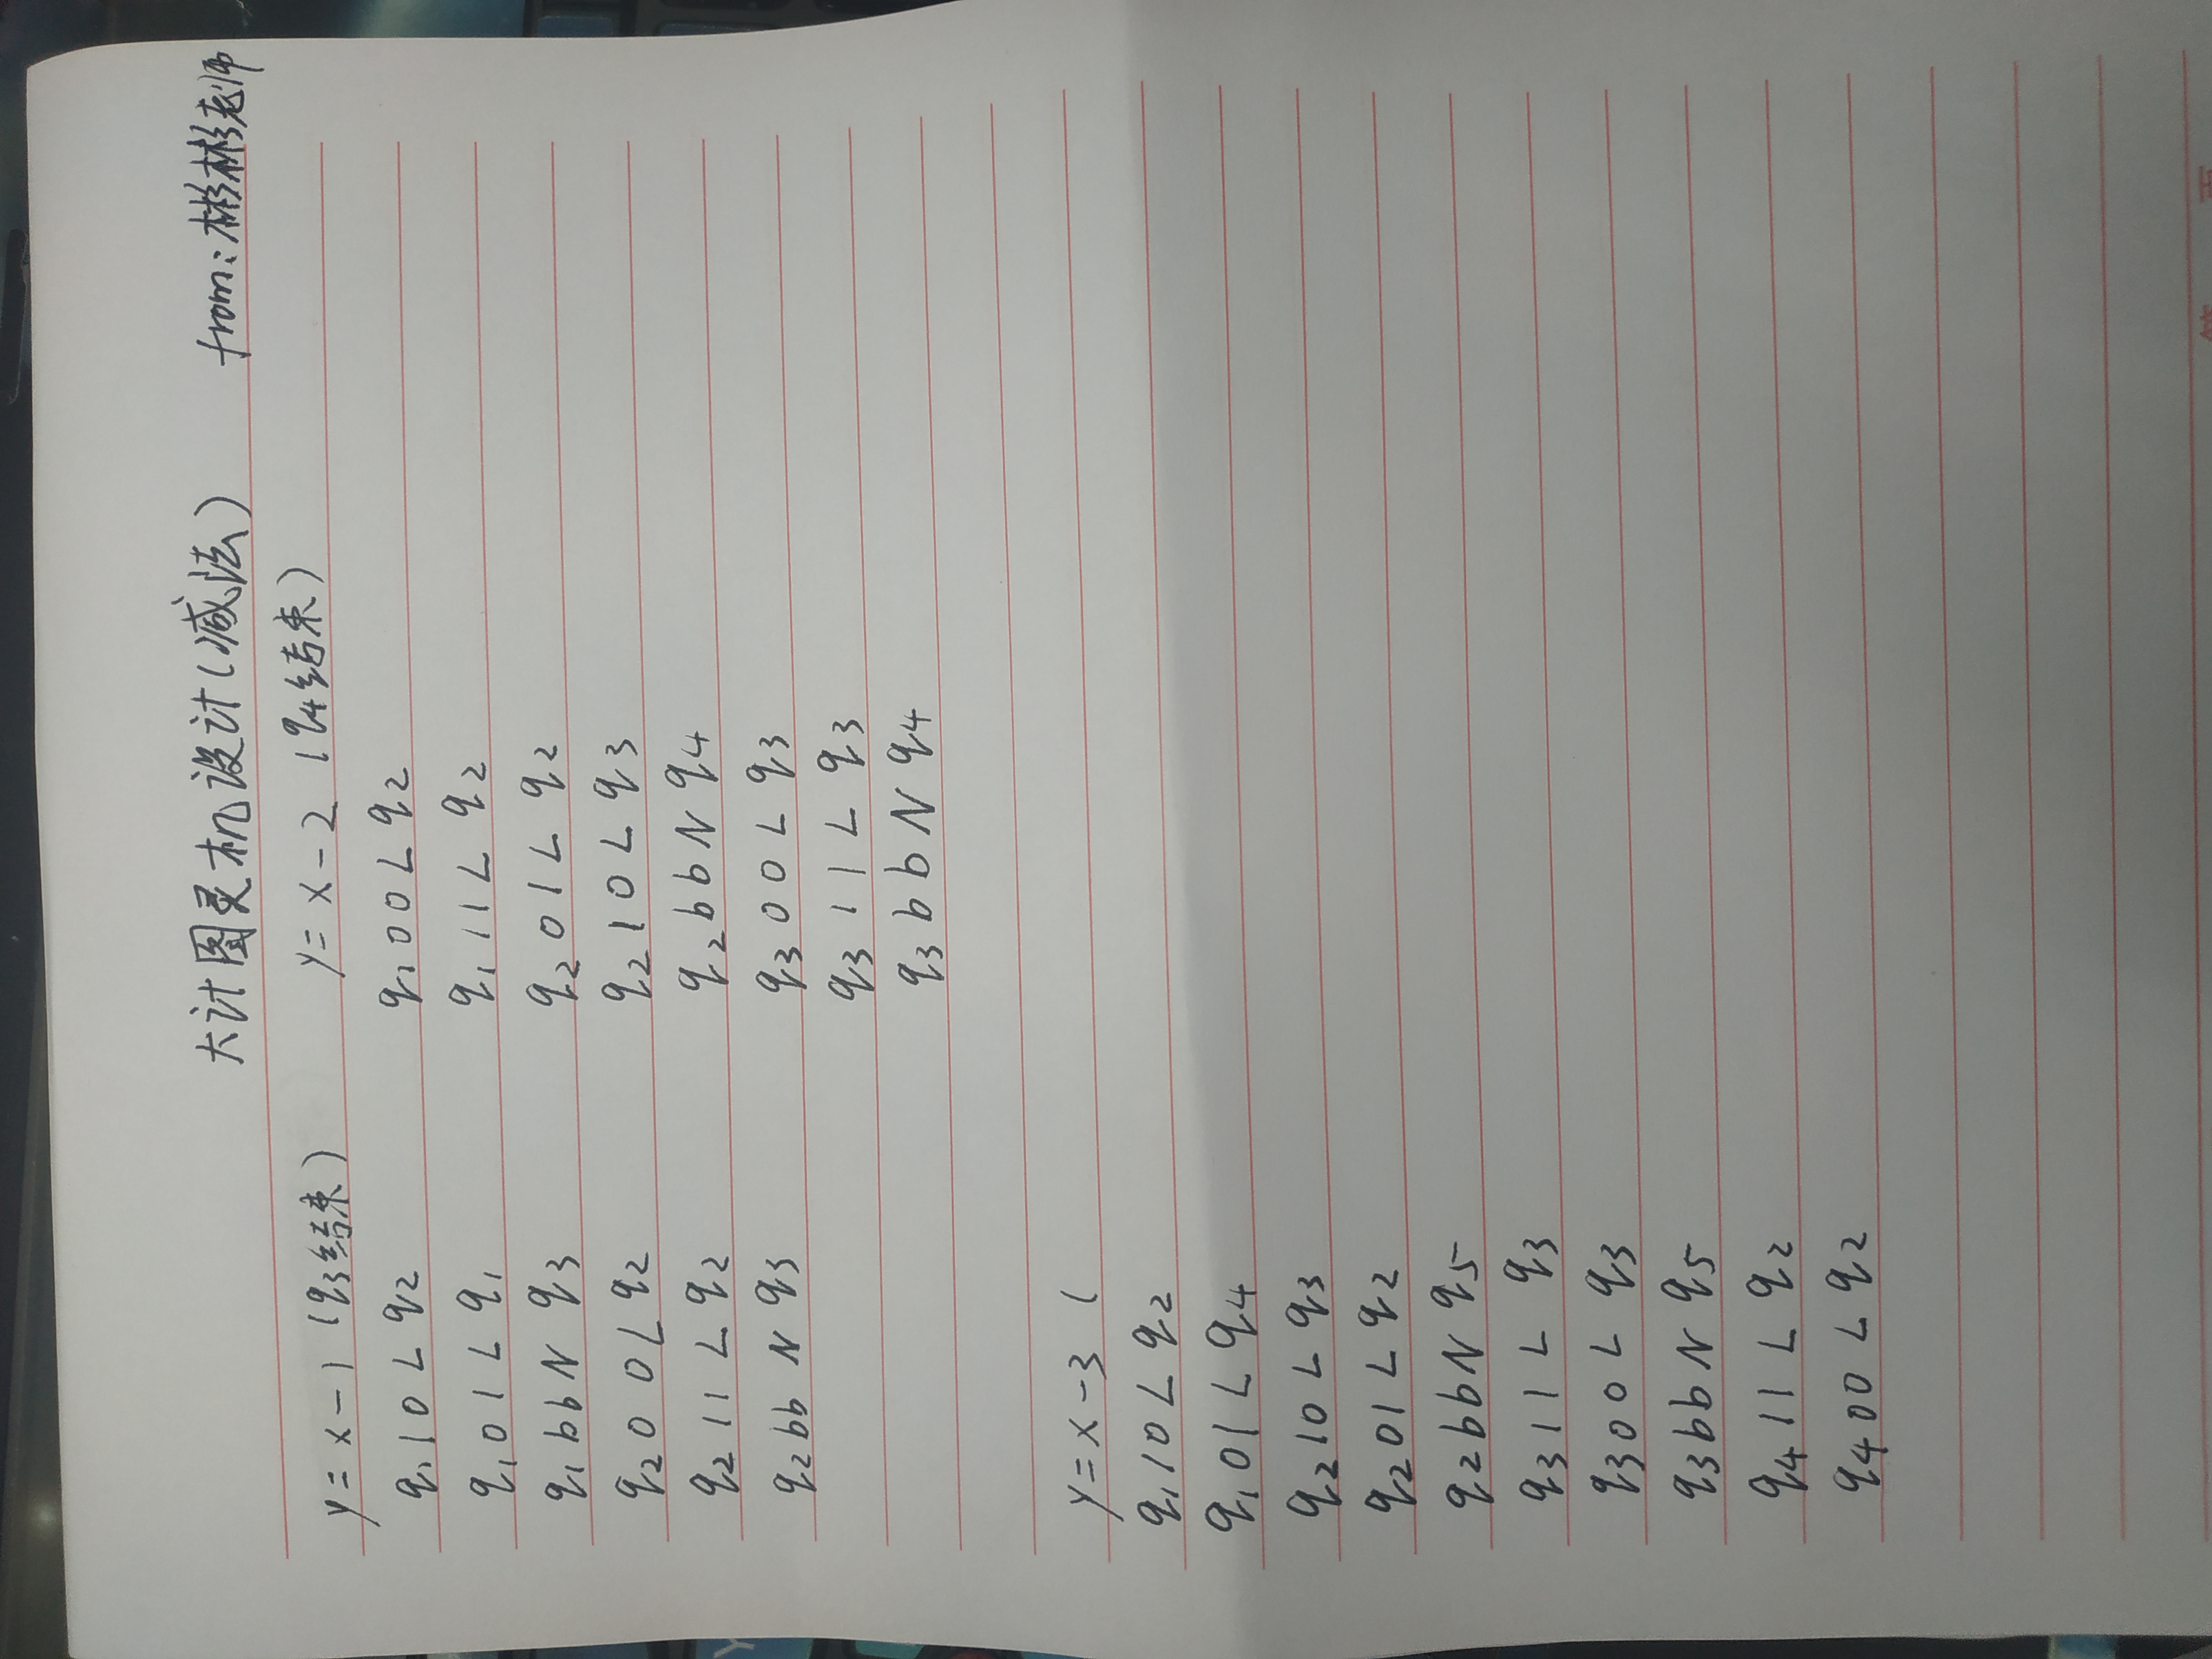 大计图灵机设计(减法) from:彬彬老师
y=x-1 (q₃结束)
q₁10L q₂
q₁01L q₁
q₁bbN q₃
q₂00L q₂
q₂11L q₂
q₂bbN q₃
y=x-2 (q₄结束)
q₁00L q₂
q₁11L q₂
q₂01L q₂
q₂10L q₃
q₂bbN q₄
q₃00L q₃
q₃11L q₃
q₃bbN q₄
y=x-3 (
q₁10L q₂
q₁01L q₄
q₂10L q₃
q₂01L q₂
q₂bbN q₅
q₃11L q₃
q₃00L q₃
q₃bbN q₅
q₄11L q₂
q₄00L q₂